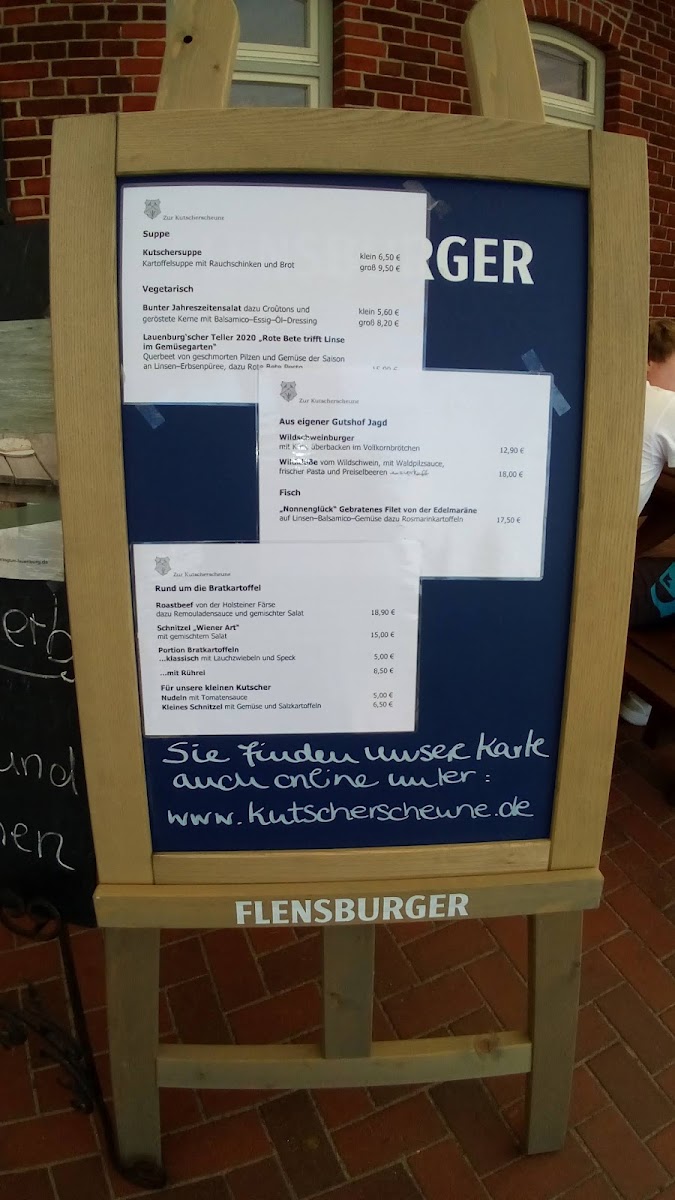 RGER
Zur Kutscherscheune
Suppe
Kutschersuppe
Kartoffelsuppe mit Rauchschinken und Brot
klein 6,50 €
groß 9,50 €
Vegetarisch
Bunter Jahreszeitensalat dazu Croûtons und
geröstete Kerne mit Balsamico-Essig-Öl-Dressing
klein 5,60 €
groß 8,20 €
Lauenburg'scher Teller 2020 „Rote Bete trifft Linse
im Gemüsegarten"
Querbeet von geschmorten Pilzen und Gemüse der Saison
an Linsen-Erbsenpüree, dazu Rote Bete
Zur Kutscherscheune
Aus eigener Gutshof Jagd
Wildschweinburger
mit überbacken im Vollkornbrötchen 12,90 €
vom Wildschwein, mit Waldpilzsauce,
frischer Pasta und Preiselbeeren 18,00 €
Fisch
„Nonnenglück" Gebratenes Filet von der Edelmaräne
auf Linsen-Balsamico-Gemüse dazu Rosmarinkartoffeln 17,50 €
Zur Kutscherscheune
Rund um die Bratkartoffel
Roastbeef von der Holsteiner Färse
dazu Remouladensauce und gemischter Salat 18,90 €
Schnitzel „Wiener Art"
mit gemischtem Salat 15,00 €
Portion Bratkartoffeln
...klassisch mit Lauchzwiebeln und Speck 5,00 €
...mit Rührei 8,50 €
Für unsere kleinen Kutscher
Nudeln mit Tomatensauce 5,00 €
Kleines Schnitzel mit Gemüse und Salzkartoffeln 6,50 €
Sie finden unsere Karte
auch online unter:
www.kutscherscheune.de
FLENSBURGER
erb
und
en